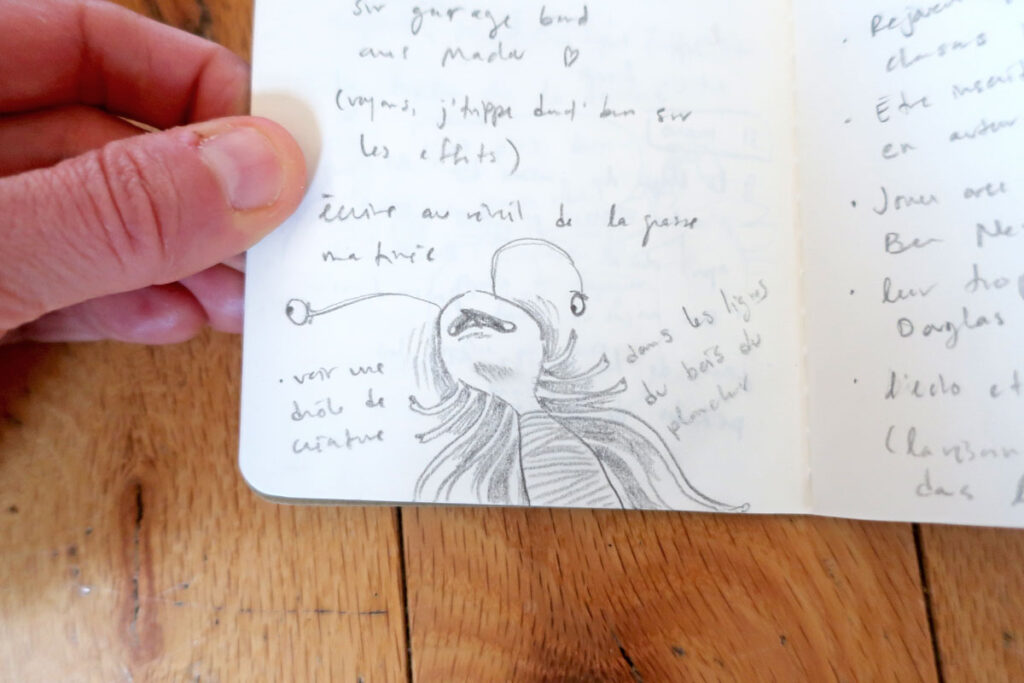 sur garage band
avec Mado ♡
(voyons, j'trippe dont' ben sur
les effets)
écrire au réveil de la grasse
matinée
· voir une
drôle de
créature
dans les lignes
du bois du
plancher
· Rejouer
· Être inscrit
en auteur
· Jouer avec
Ben
· leur trop
Douglas
· L'écho et
dans